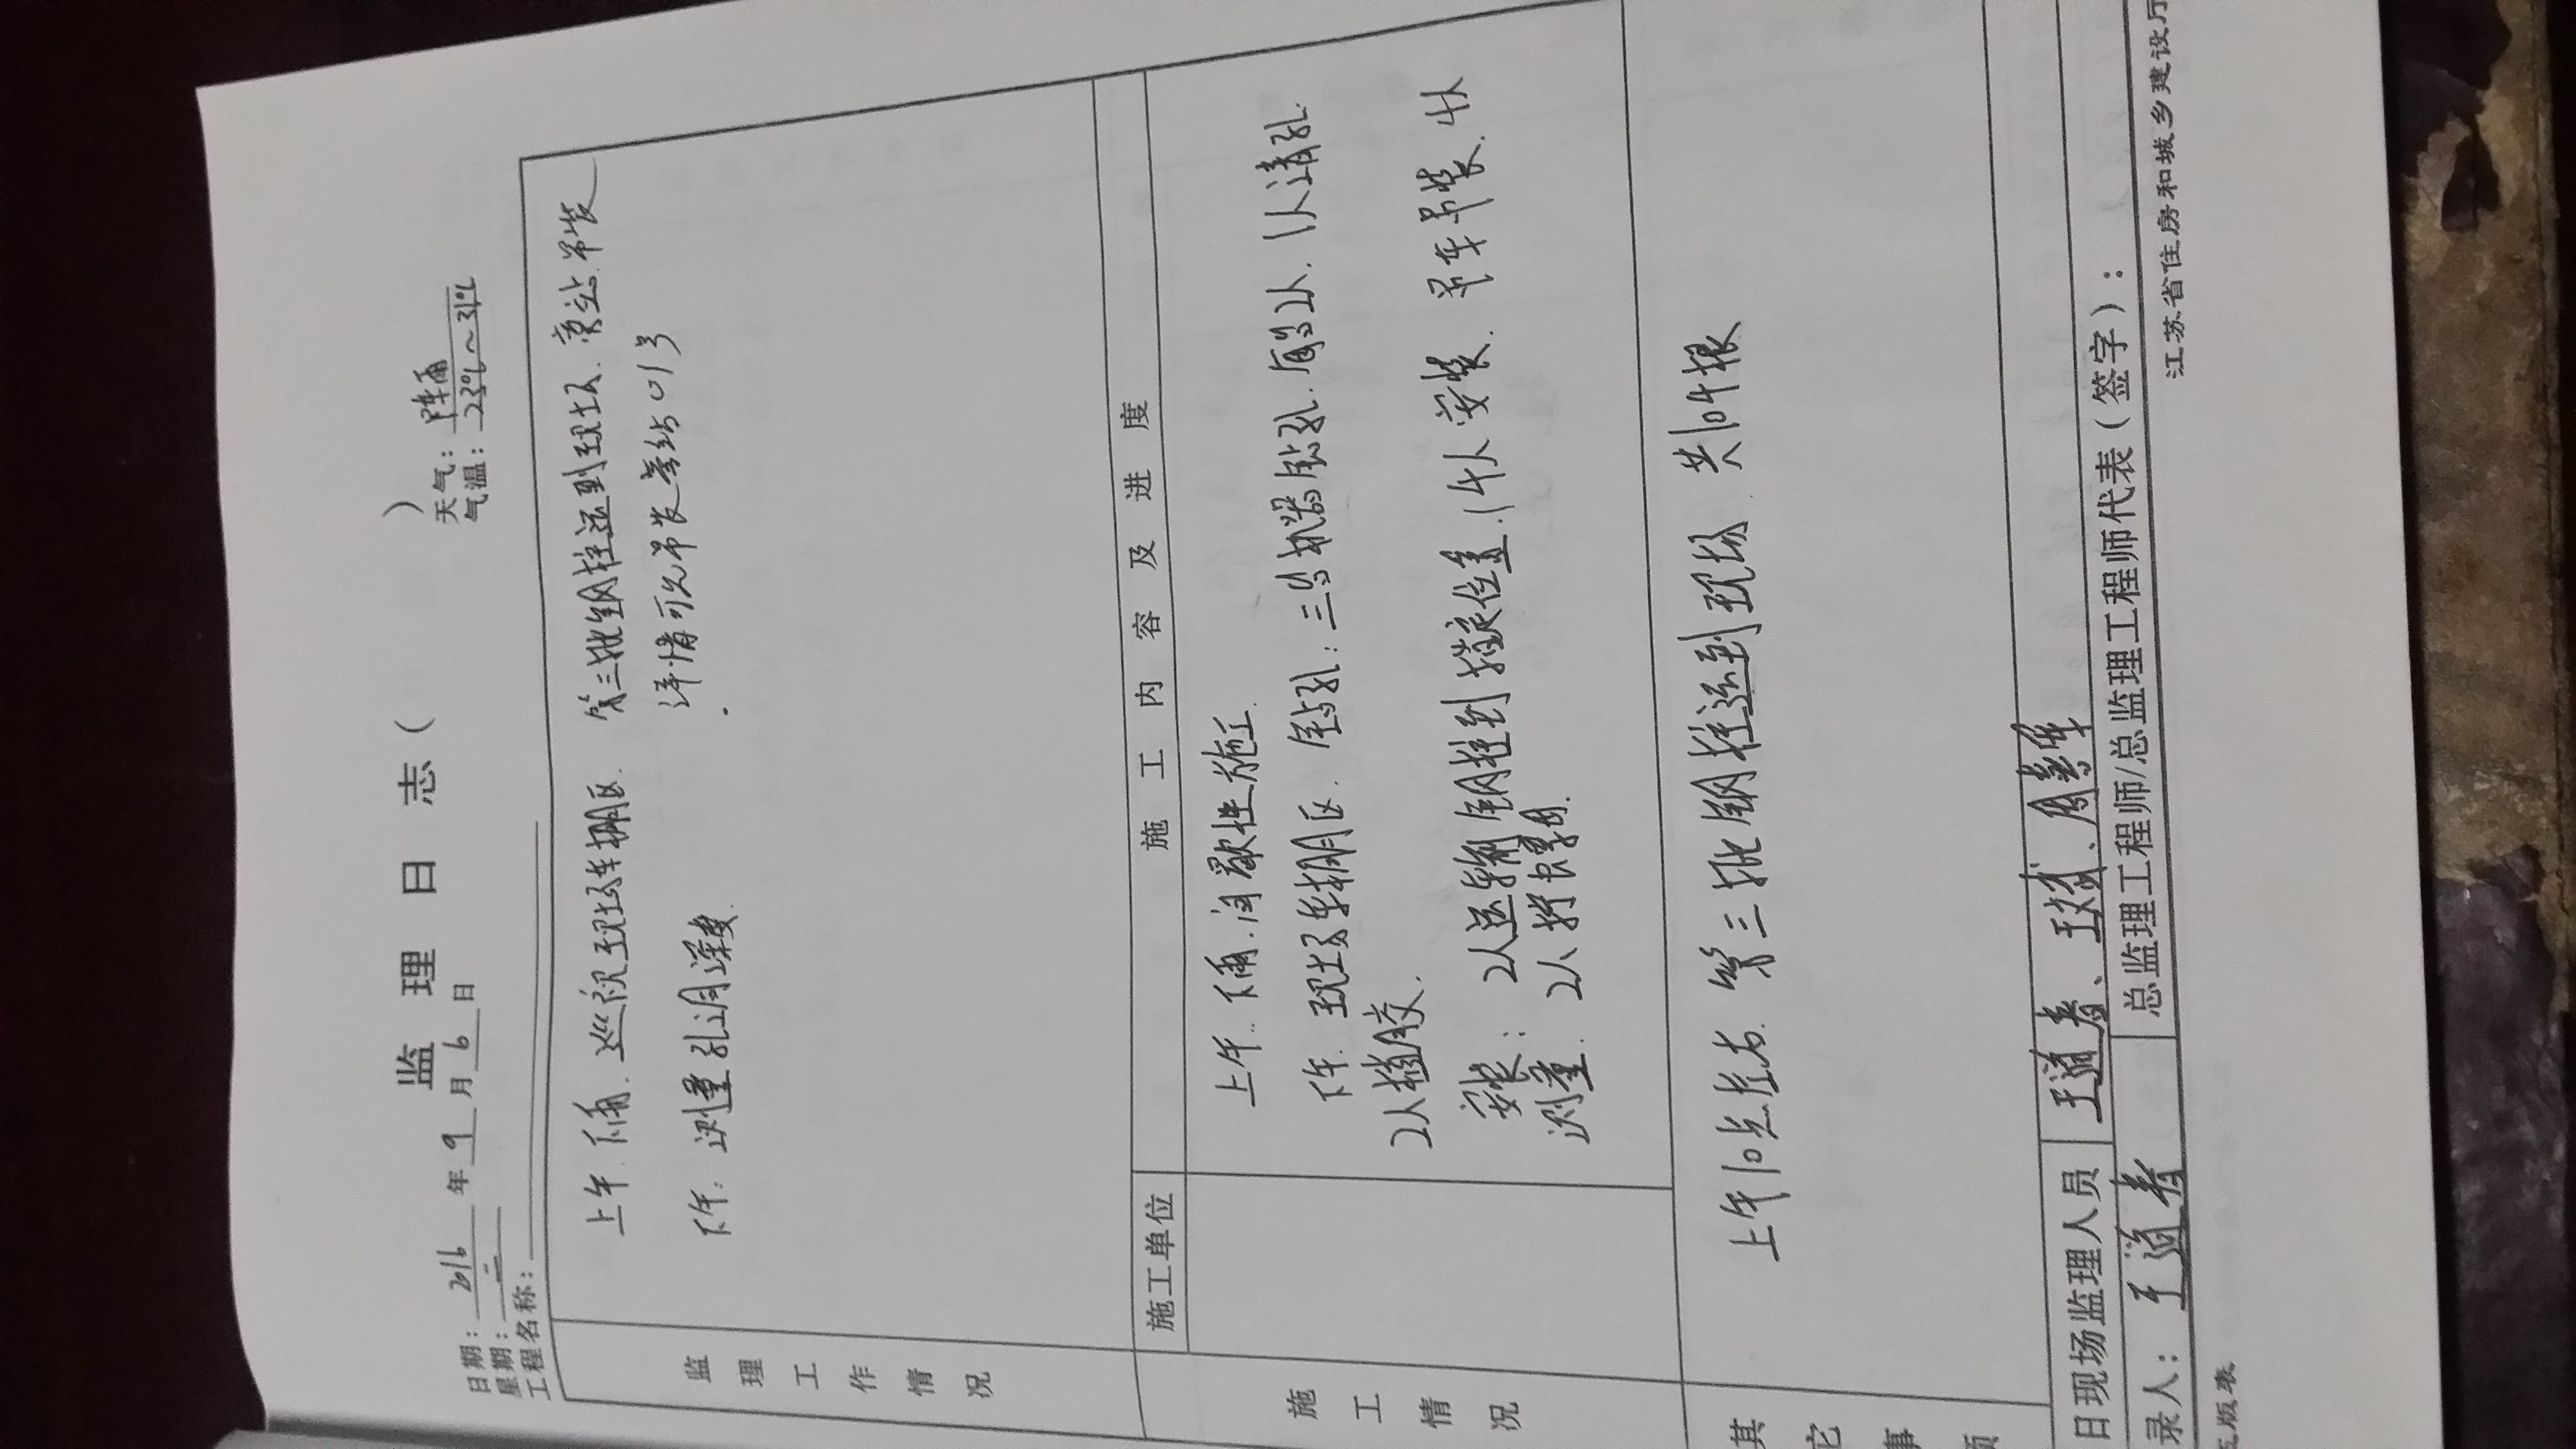 监 理 日 志 (            )
日期： 2016 年 9 月 6 日 天气： 阵雨
星期： 二 气温： 23℃～31℃
工程名称：
监理工作情况
上午．下雨．巡视现场车棚区． 第三批钢柱运到现场．旁站．吊装
详情可见吊装旁站013
下午：测量孔洞深度．
施工情况
施工单位
施 工 内 容 及 进 度
上午．下雨．间歇性施工．
下午．现场车棚区．钻孔：三台机器钻孔．每台2人．1人清孔．
2人植胶．
安装：2人运输钢柱到指定位置．14人安装．吊车吊装．4人
测量．2人拧螺母．
其它事项
上午10点左右．第三批钢柱运到现场．共104根
日现场监理人员 王道春、王斌、周
录人： 王道春 总监理工程师/总监理工程师代表（签字）：
五版表 江苏省住房和城乡建设厅